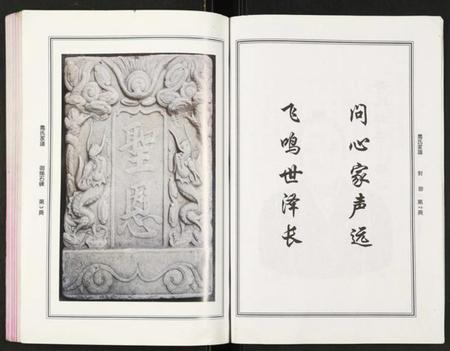 问心家声远
飞鸣世泽长
聖恩